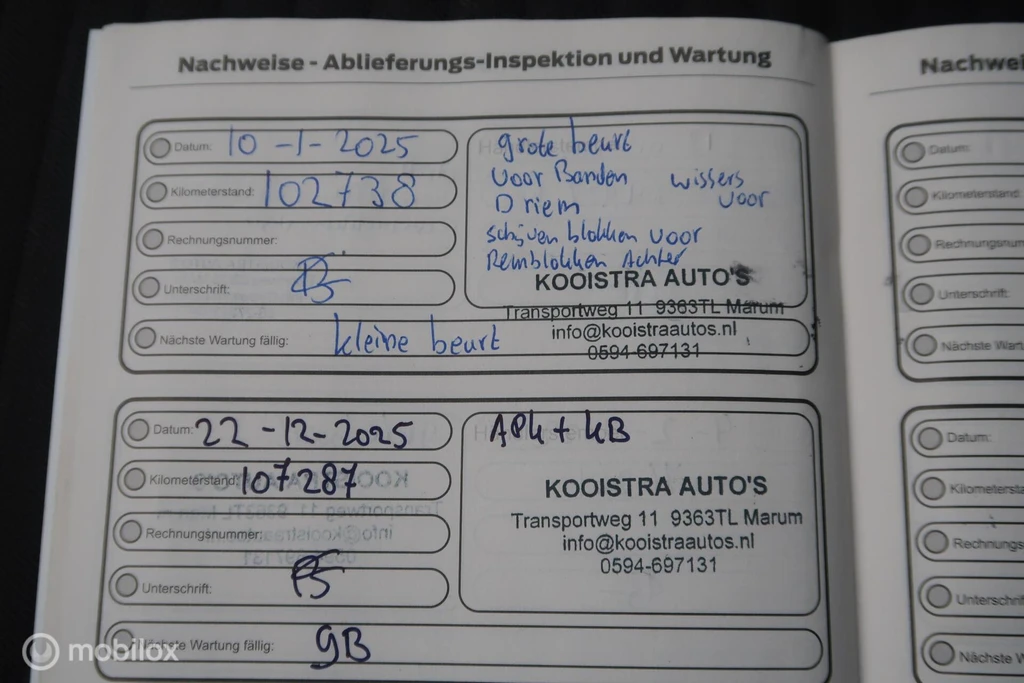 Nachweise - Ablieferungs-Inspektion und Wartung
Datum: 10-1-2025
Kilometerstand: 102738
Rechnungsnummer:
Unterschrift:
Nächste Wartung fällig: kleine beurt
grote beurt
voor Banden wissers
D riem voor
schijven blokken voor
Remblokken Achter
KOOISTRA AUTO'S
Transportweg 11 9363TL Marum
info@kooistraautos.nl
0594-697131
Datum: 22-12-2025
Kilometerstand: 107287
Rechnungsnummer:
Unterschrift:
Nächste Wartung fällig: gB
APK + kB
KOOISTRA AUTO'S
Transportweg 11 9363TL Marum
info@kooistraautos.nl
0594-697131
Nachwei
Datum:
Kilometerstand:
Rechnungsnum
Unterschrift:
Nächste Wart
Datum:
Kilometersta
Rechnungs
Unterschrif
Nächste W
mobilox